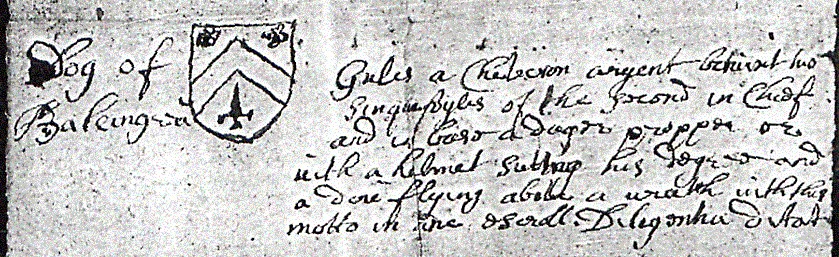 Dog of
Balingrä
Gules a Cheveron argent betwixt two
Sinquefoyles of the second in Chief
and in base a dager propper or
with a helmet suting his degree and
a dove flying above a wreath with this
motto in ane escroll Diligentia ditat